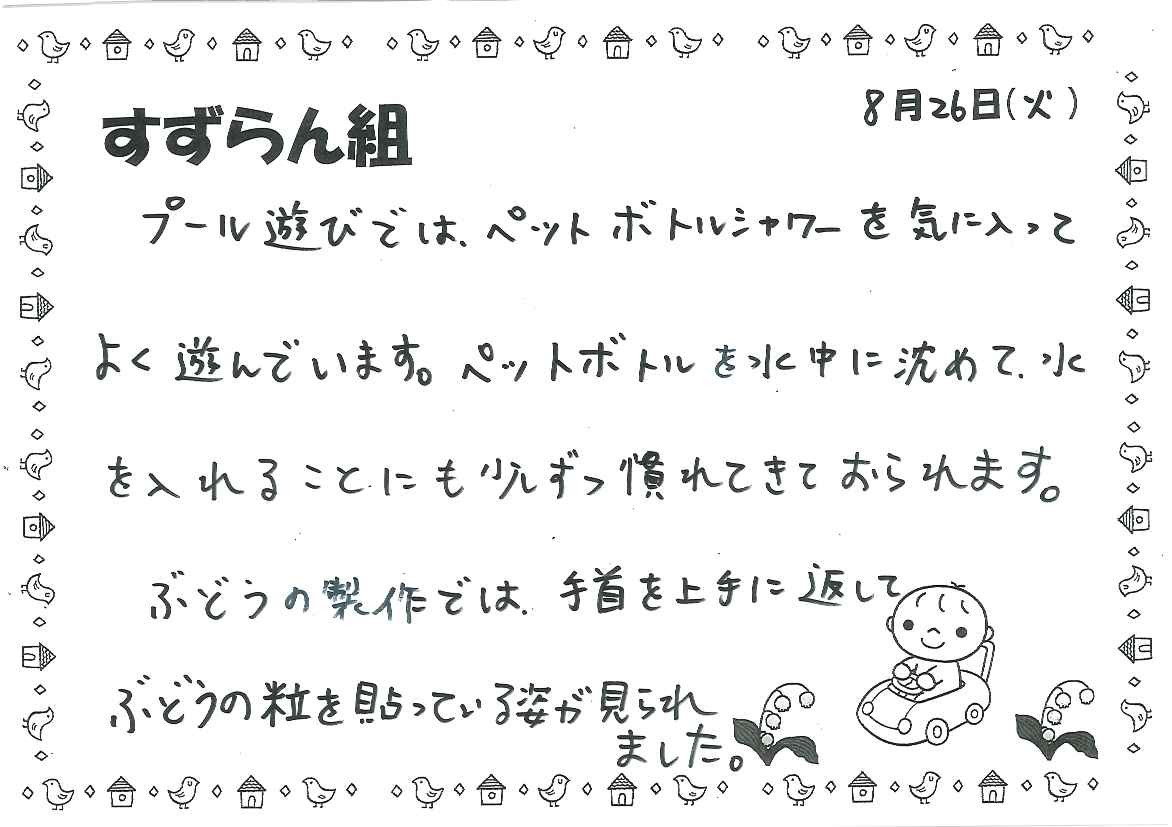 8月26日(火)
すずらん組
プール遊びでは、ペットボトルシャワーを気に入って
よく遊んでいます。ペットボトルを水中に沈めて、水
を入れることにも少しずつ慣れてきておられます。
ぶどうの製作では、手首を上手に返して
ぶどうの粒を貼っている姿が見られ
ました。